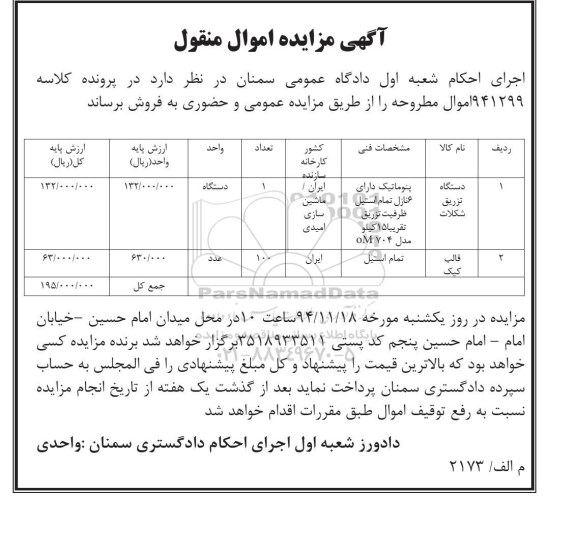 آگهی مزایده اموال منقول
اجرای احکام شعبه اول دادگاه عمومی سمنان در نظر دارد در پرونده کلاسه
۹۴۱۲۹۹اموال مطروحه را از طریق مزایده عمومی و حضوری به فروش برساند
ردیف نام کالا مشخصات فنی کشور کارخانه سازنده تعداد واحد ارزش پایه واحد(ریال) ارزش پایه کل(ریال)
۱ دستگاه تزریق شکلات پنوماتیک دارای ۶نازل تمام استیل ظرفیت تزریق تقریبا۱۵کیلو مدل ۷۰۴ oM ایران / ماشین سازی امیدی ۱ دستگاه ۱۳۲/۰۰۰/۰۰۰ ۱۳۲/۰۰۰/۰۰۰
۲ قالب کیک تمام استیل ایران ۱۰۰ عدد ۶۳۰/۰۰۰ ۶۳/۰۰۰/۰۰۰
جمع کل ۱۹۵/۰۰۰/۰۰۰
ParsNamadData
مزایده در روز یکشنبه مورخه ۹۴/۱۱/۱۸ساعت ۱۰در محل میدان امام حسین –خیابان
امام – امام حسین پنجم کد پستی ۳۵۱۸۹۳۳۵۱۱برگزار خواهد شد برنده مزایده کسی
۰۲۱-۸۸۳۴۹۶۷۰-۵
خواهد بود که بالاترین قیمت را پیشنهاد و کل مبلغ پیشنهادی را فی المجلس به حساب
سپرده دادگستری سمنان پرداخت نماید بعد از گذشت یک هفته از تاریخ انجام مزایده
نسبت به رفع توقیف اموال طبق مقررات اقدام خواهد شد
دادورز شعبه اول اجرای احکام دادگستری سمنان :واحدی
م الف/ ۲۱۷۳